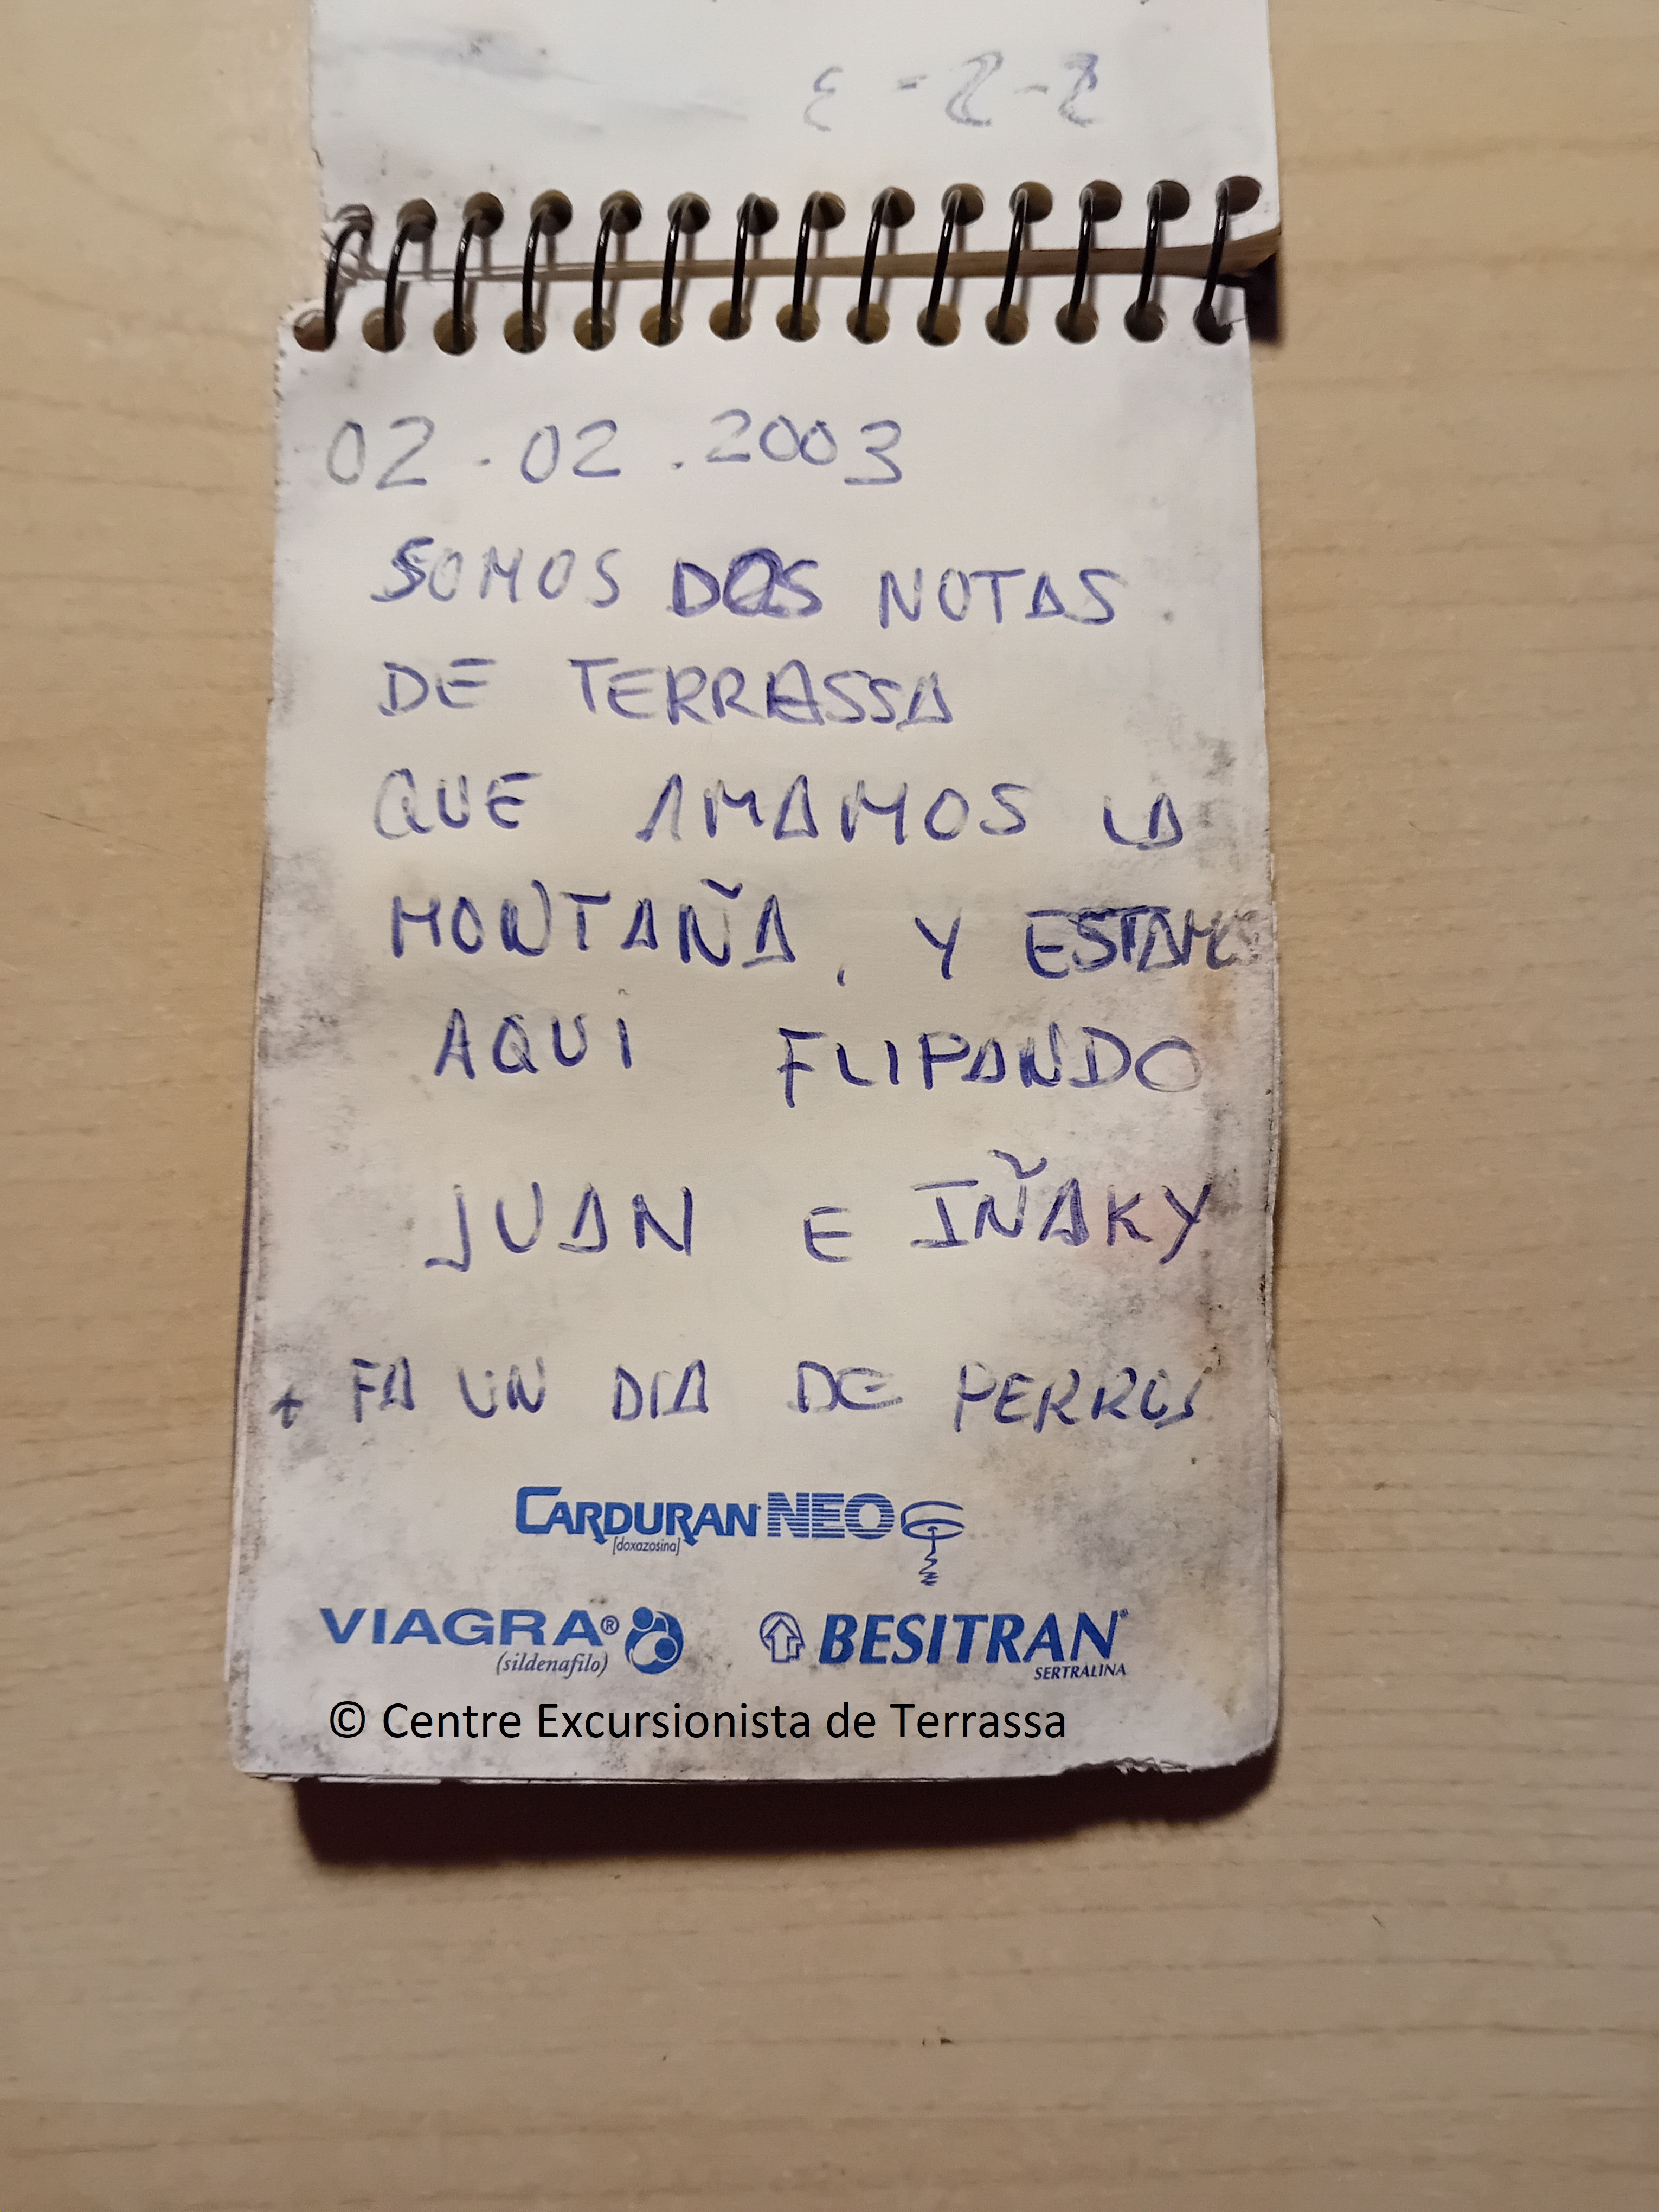 02.02.2003
SOMOS DOS NOTAS
DE TERRASSA
QUE AMAMOS LA
MONTAÑA, Y ESTAMOS
AQUI FLIPANDO
JUAN E IÑAKY
+ FA UN DIA DE PERROS
CARDURAN NEO
[doxazosina]
VIAGRA®
(sildenafilo)
BESITRAN
SERTRALINA
© Centre Excursionista de Terrassa